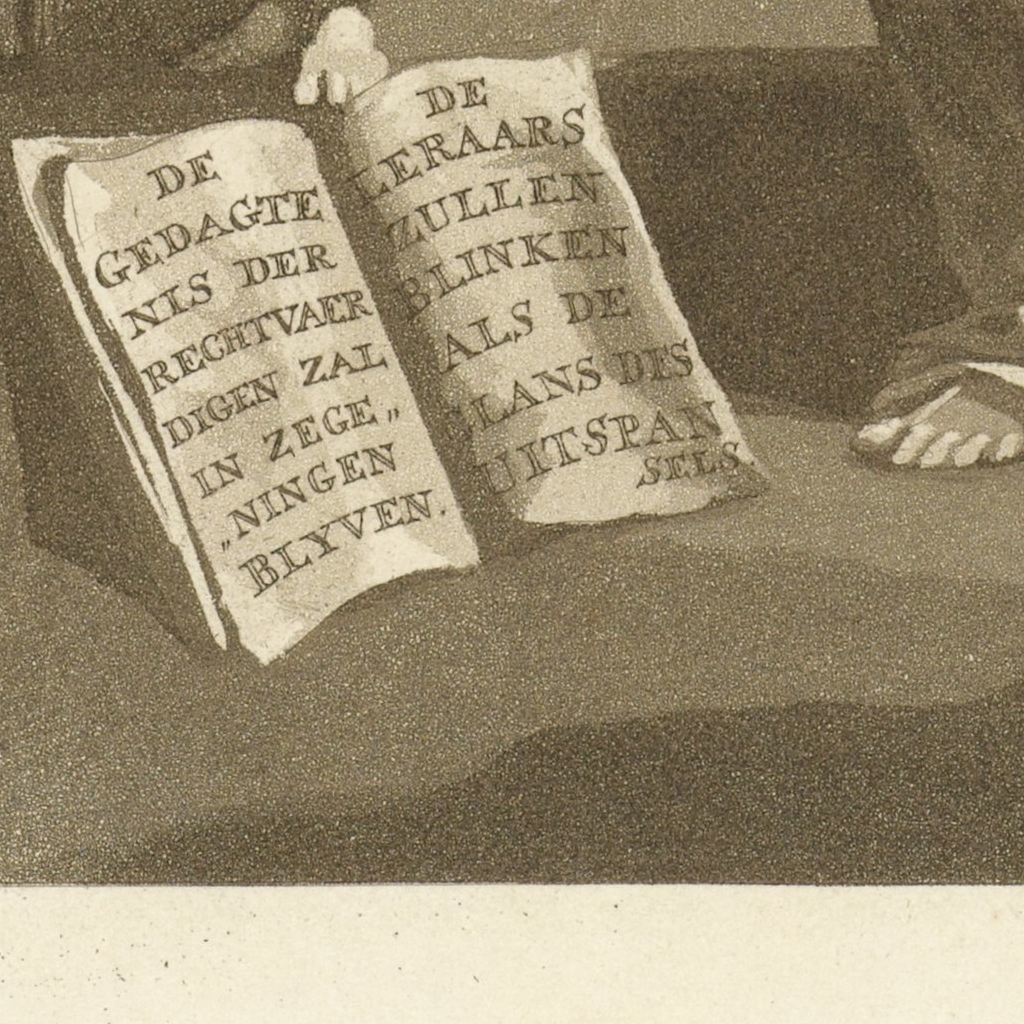 DE
GEDAGTE
NIS DER
RECHTVAER
DIGEN ZAL
IN ZEGE„
„NINGEN
BLYVEN.
DE
LERAARS
ZULLEN
BLINKEN
ALS DE
GLANS DES
UITSPAN
SELS.